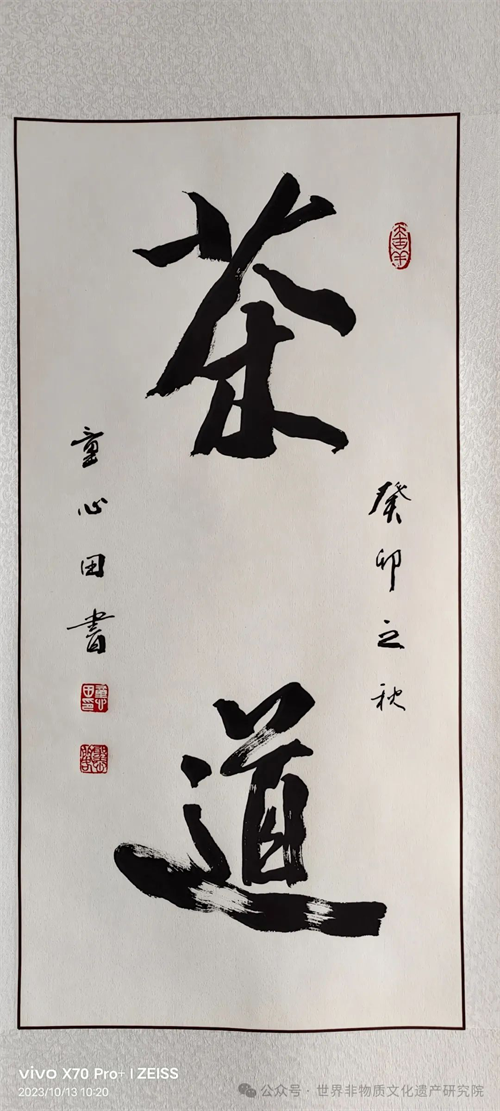 茶道
癸卯之秋
童心田書
vivo X70 Pro+ | ZEISS
2023/10/13 10:20
公众号 · 世界非物质文化遗产研究院